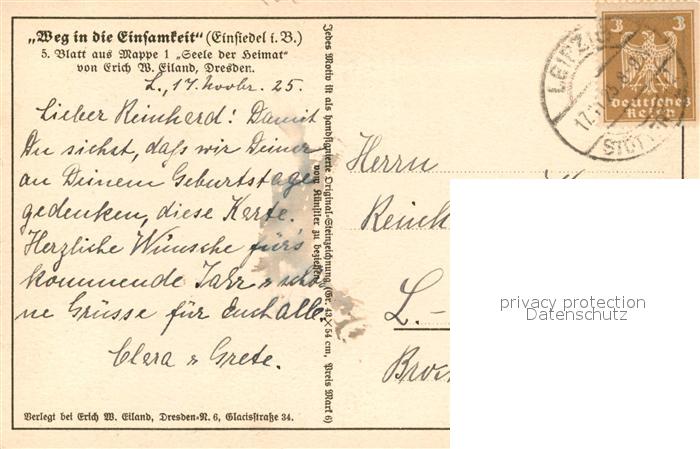 „Weg in die Einsamkeit“ (Einsiedel i. B.)
5. Blatt aus Mappe 1 „Seele der Heimat“
von Erich W. Eiland, Dresden.
L., 17. Novbr. 25.
Lieber Reinhard! Damit
Du siehst, daß wir Deiner
an Deinem Geburtstage
gedenken, diese Karte.
Herzliche Wünsche für's
kommende Jahr u. schö
ne Grüsse für Euch alle.
Clara u. Grete.
Verlegt bei Erich W. Eiland, Dresden-N. 6, Glacisstraße 34.
Jedes Motiv ist als handsignierte Original-Steinzeichnung (Gr. 43×54 cm, Preis Mark 6)
vom Künstler zu beziehen
3 3
deutsches
Reich
LEIPZIG
17.11.25. 8-9
Herrn
L.-
privacy protection
Datenschutz